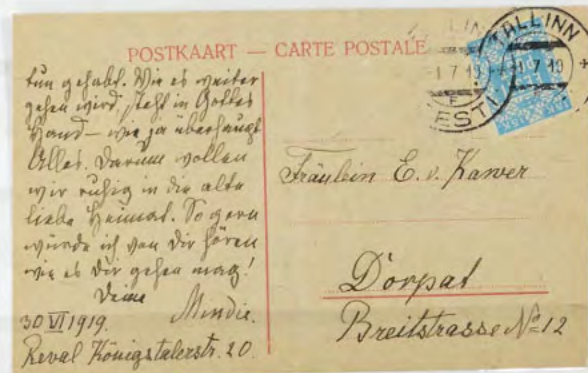 POSTKAART — CARTE POSTALE
TALLINN
1 7 19
EESTI
tun gehabt. Wie es weiter
gehen wird, steht in Gottes
Hand – wie ja überhaupt
Alles. Darum wollen
wir ruhig in die alte
liebe Heimat. So gern
würde ich von Dir hören
wie es Dir gehen mag!
Deine
Mindie.
30 VI 1919.
Reval Königstalerstr. 20.
Fräulein E. v. Kawer
Dorpat
Breitstrasse № 12